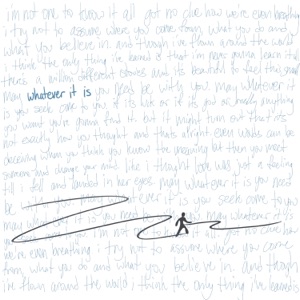 i'm not one to know it all got no clue how we're even breathing
i try not to assume where you come from, what you do and
what you believe in. and though i've flown around the world
i think the only thing i've learned is that i'm never gonna learn it all
there's a million different and its beautiful to feel
may whatever it is you need be with you. may whatever it
is you seek come to you if it's or if it's or anything
you want you're gonna find it. but it might turn out that its
not exactly how you thought and thats alright even can be
deceiving when you think you know the meaning but then you meet
someone and change your mind. like i thought love was just a feeling
till i fell and landed in your eyes. may whatever it is you need
be may whatever it is you seek come to you
may what is you need may whatever it is
you i'm not one to how
we're even breathing. i try not to assume where you come
from, what you do and what you believe in. and though
i've flown around the world i think the only thing i've learned